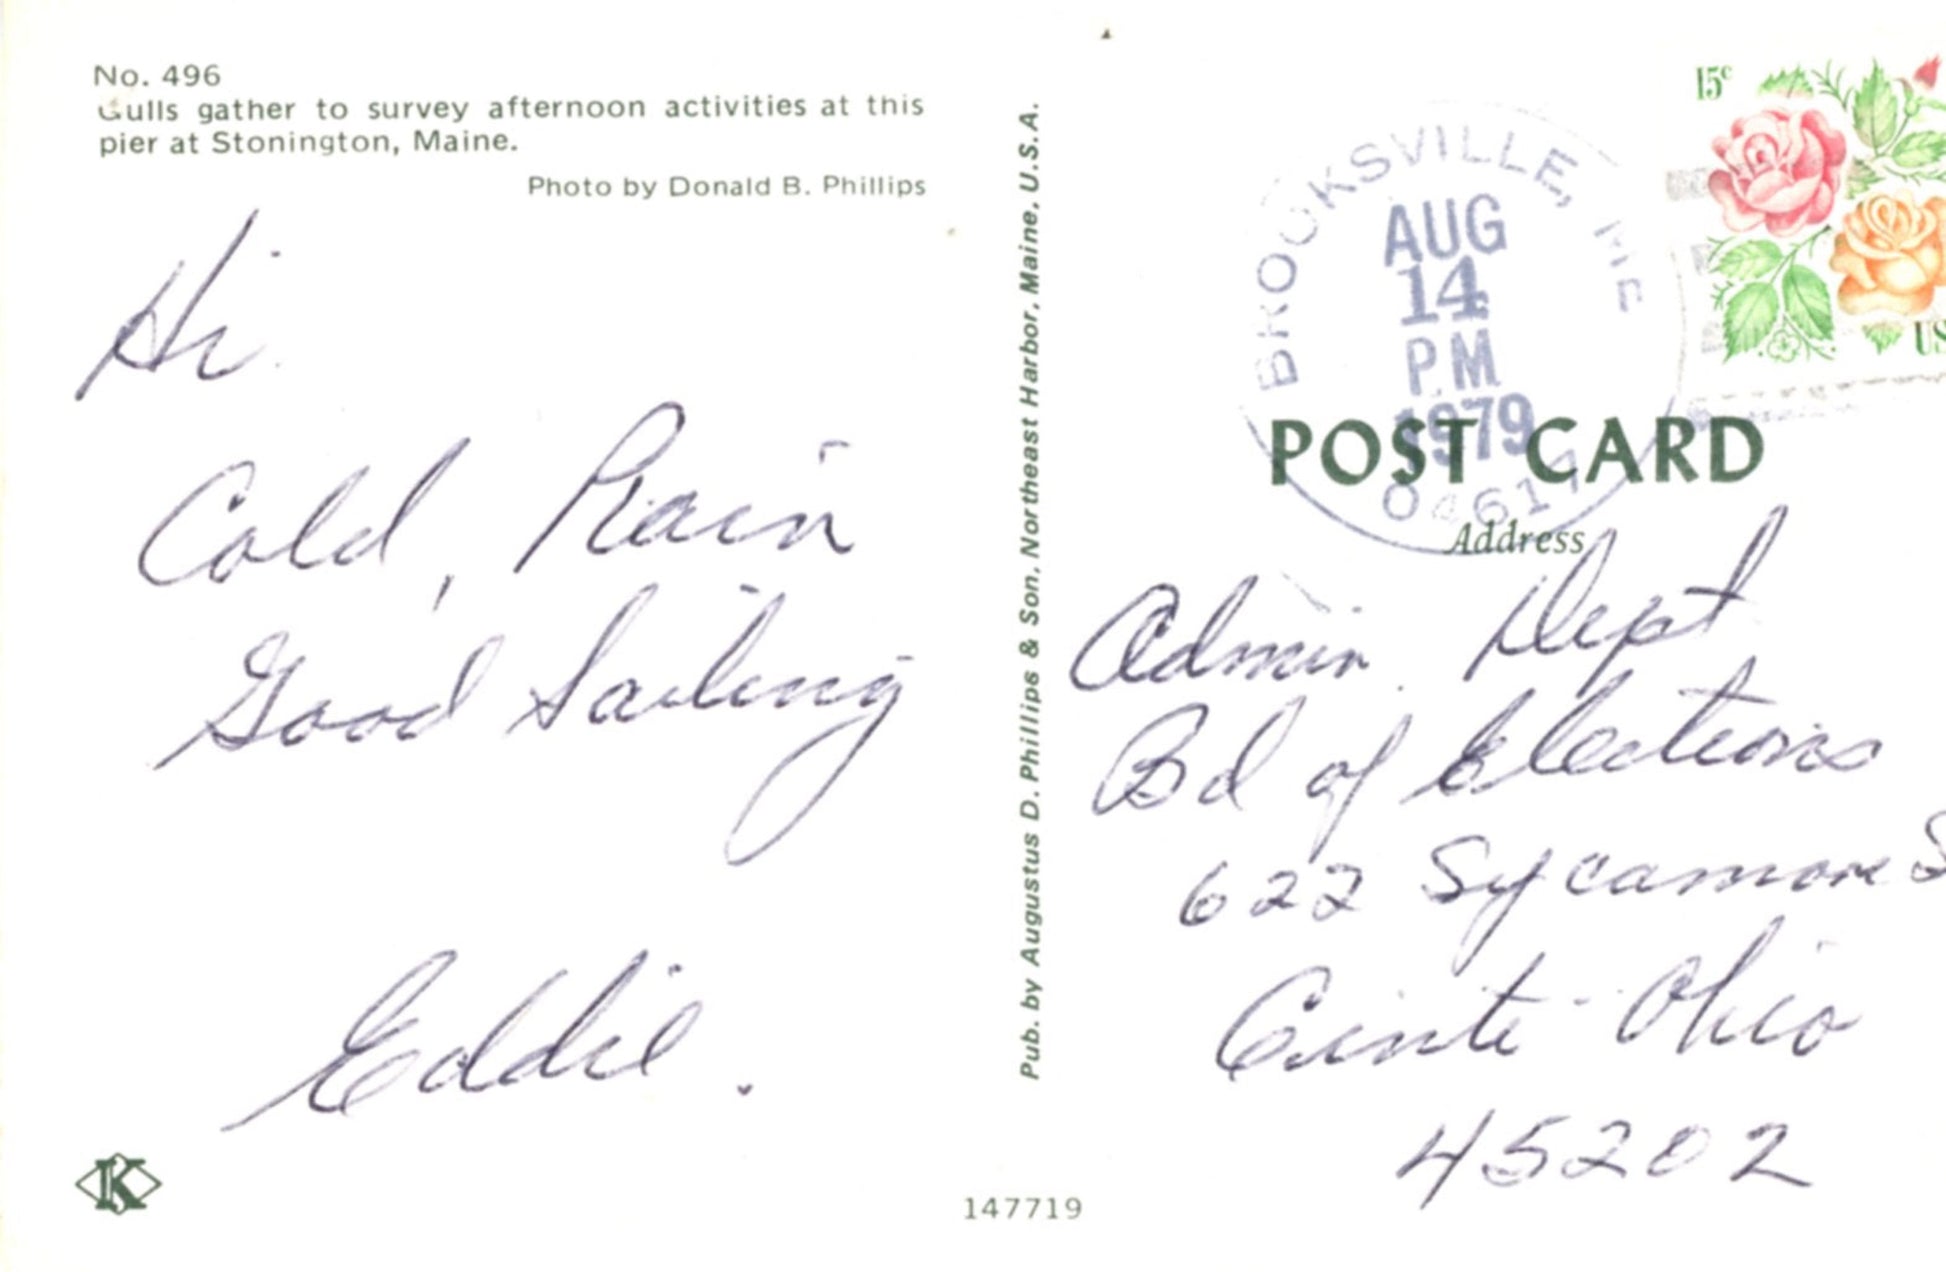 No. 496
Gulls gather to survey afternoon activities at this
pier at Stonington, Maine.
Photo by Donald B. Phillips
Hi
Cold, Rain
Good Sailing
Eddie.
K
Pub. by Augustus D. Phillips & Son, Northeast Harbor, Maine, U.S.A.
147719
15c
US
BROOKSVILLE, ME
AUG
14
PM
1979
04617
POST CARD
Address
Admin. Dept
Bd of Elections
622 Sycamore S
Cinti - Ohio
45202